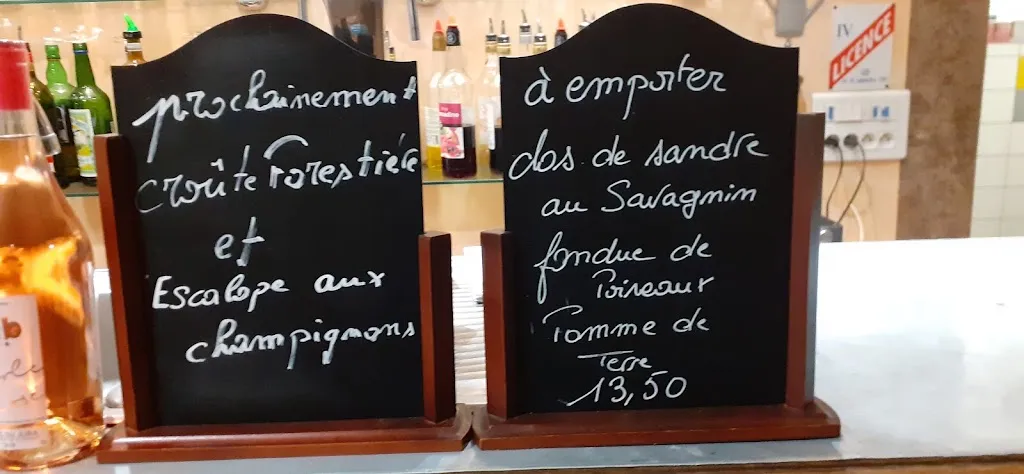 prochainement
croûte Forestière
et
Escalope aux
champignons
à emporter
dos de sandre
au Savagnin
fondue de
Poireaux
Pomme de
Terre
13,50
IV
LICENCE